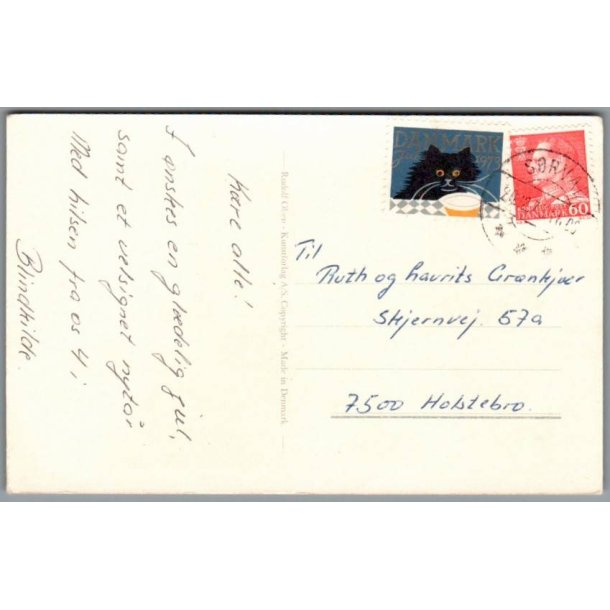 Kære alle!
I ønskes en glædelig jul,
samt et velsignet nytår
Med hilsen fra os 4 i
Blindkilde.
Rudolf Olsen - Kunstforlag A/S. Copyright - Made in Denmark
DANMARK
Jul 1973
DANMARK 60
SØRVA
Til
Ruth og Laurits Grønkjær
Skjernvej. 57a
7500 Holstebro.